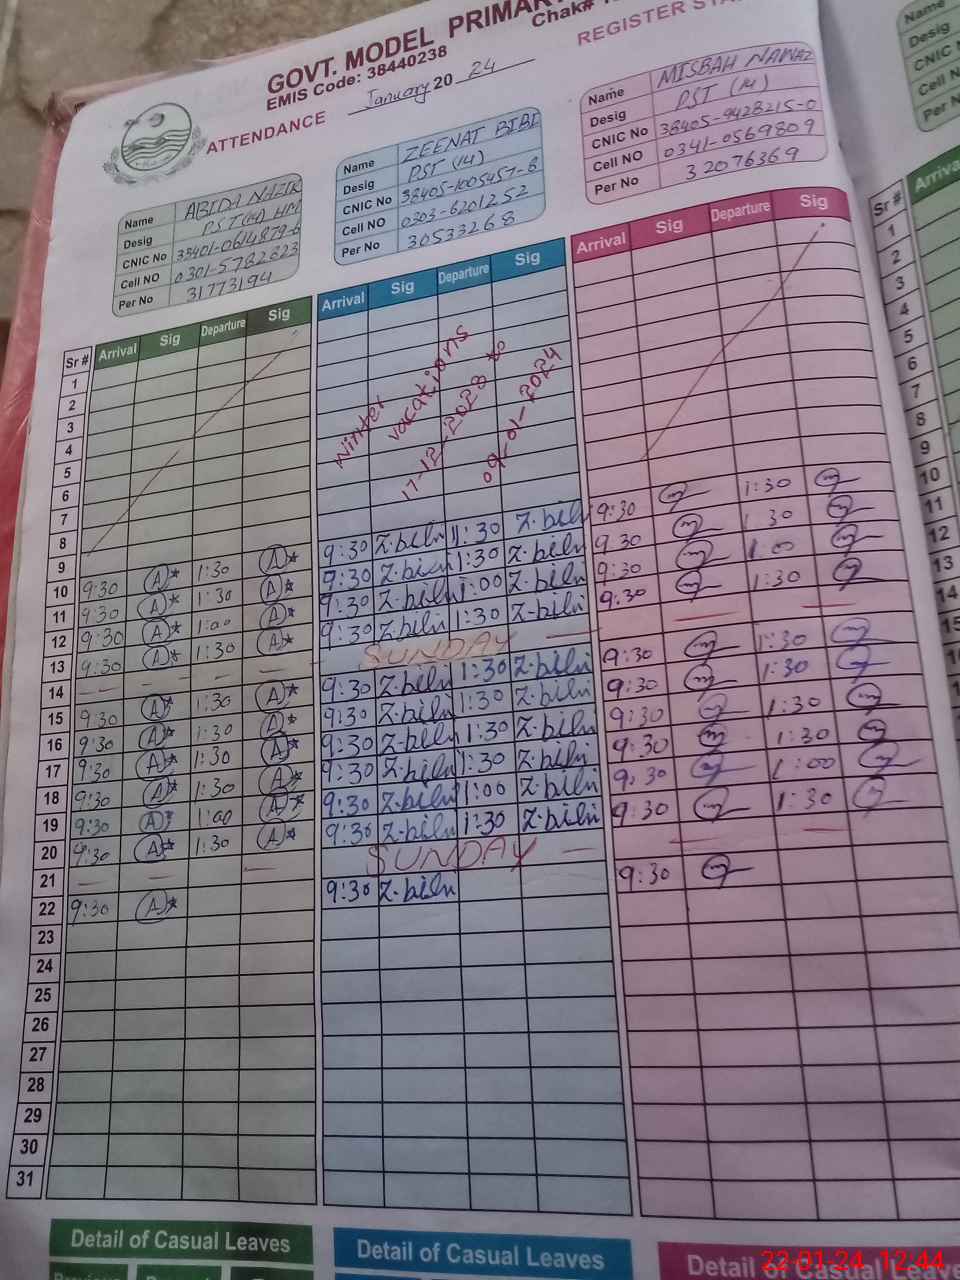 GOVT. MODEL PRIMAR
Chak#
EMIS Code: 38440238
REGISTER STA
ATTENDANCE January 20 24
Name ABIDA NAZIR
Desig PST(14) HM
CNIC No 38401-0614879-6
Cell NO 0301-5782823
Per No 31773194
Name ZEENAT BIBI
Desig PST (14)
CNIC No 38405-1005457-6
Cell NO 0303-6201252
Per No 30533268
Name MISBAH NAWAZ
Desig PST (14)
CNIC No 38405-9428215-0
Cell NO 0341-0569809
Per No 32076369
Name
Desig
CNIC N
Cell N
Per N
Sr # Arrival Sig Departure Sig Arrival Sig Departure Sig Arrival Sig Departure Sig Sr # Arriva
1
2
3
4
5
6
7
8
9
Winter
vacations
17-12-2023 to
09-01-2024
10 9:30 A 1:30 A 9:30 Z.bibi 1:30 Z.bibi 9:30 m 1:30 m
11 9:30 A 1:30 A 9:30 Z.bibi 1:30 Z.bibi 9:30 m 1:30 m
12 9:30 A 1:00 A 9:30 Z.bibi 1:00 Z.bibi 9:30 m 1:00 m
13 9:30 A 1:30 A 9:30 Z.bibi 1:30 Z.bibi 9:30 m 1:30 m
14 SUNDAY
15 9:30 A 1:30 A 9:30 Z.bibi 1:30 Z.bibi 9:30 m 1:30 m
16 9:30 A 1:30 A 9:30 Z.bibi 1:30 Z.bibi 9:30 m 1:30 m
17 9:30 A 1:30 A 9:30 Z.bibi 1:30 Z.bibi 9:30 m 1:30 m
18 9:30 A 1:30 A 9:30 Z.bibi 1:30 Z.bibi 9:30 m 1:30 m
19 9:30 A 1:00 A 9:30 Z.bibi 1:00 Z.bibi 9:30 m 1:00 m
20 9:30 A 1:30 A 9:30 Z.bibi 1:30 Z.bibi 9:30 m 1:30 m
21 SUNDAY
22 9:30 A 9:30 Z.bibi 9:30 m
23
24
25
26
27
28
29
30
31
1
2
3
4
5
6
7
8
9
10
11
12
13
14
15
Detail of Casual Leaves
Detail of Casual Leaves
Detail of Casual Leaves
22-01-24 12:44